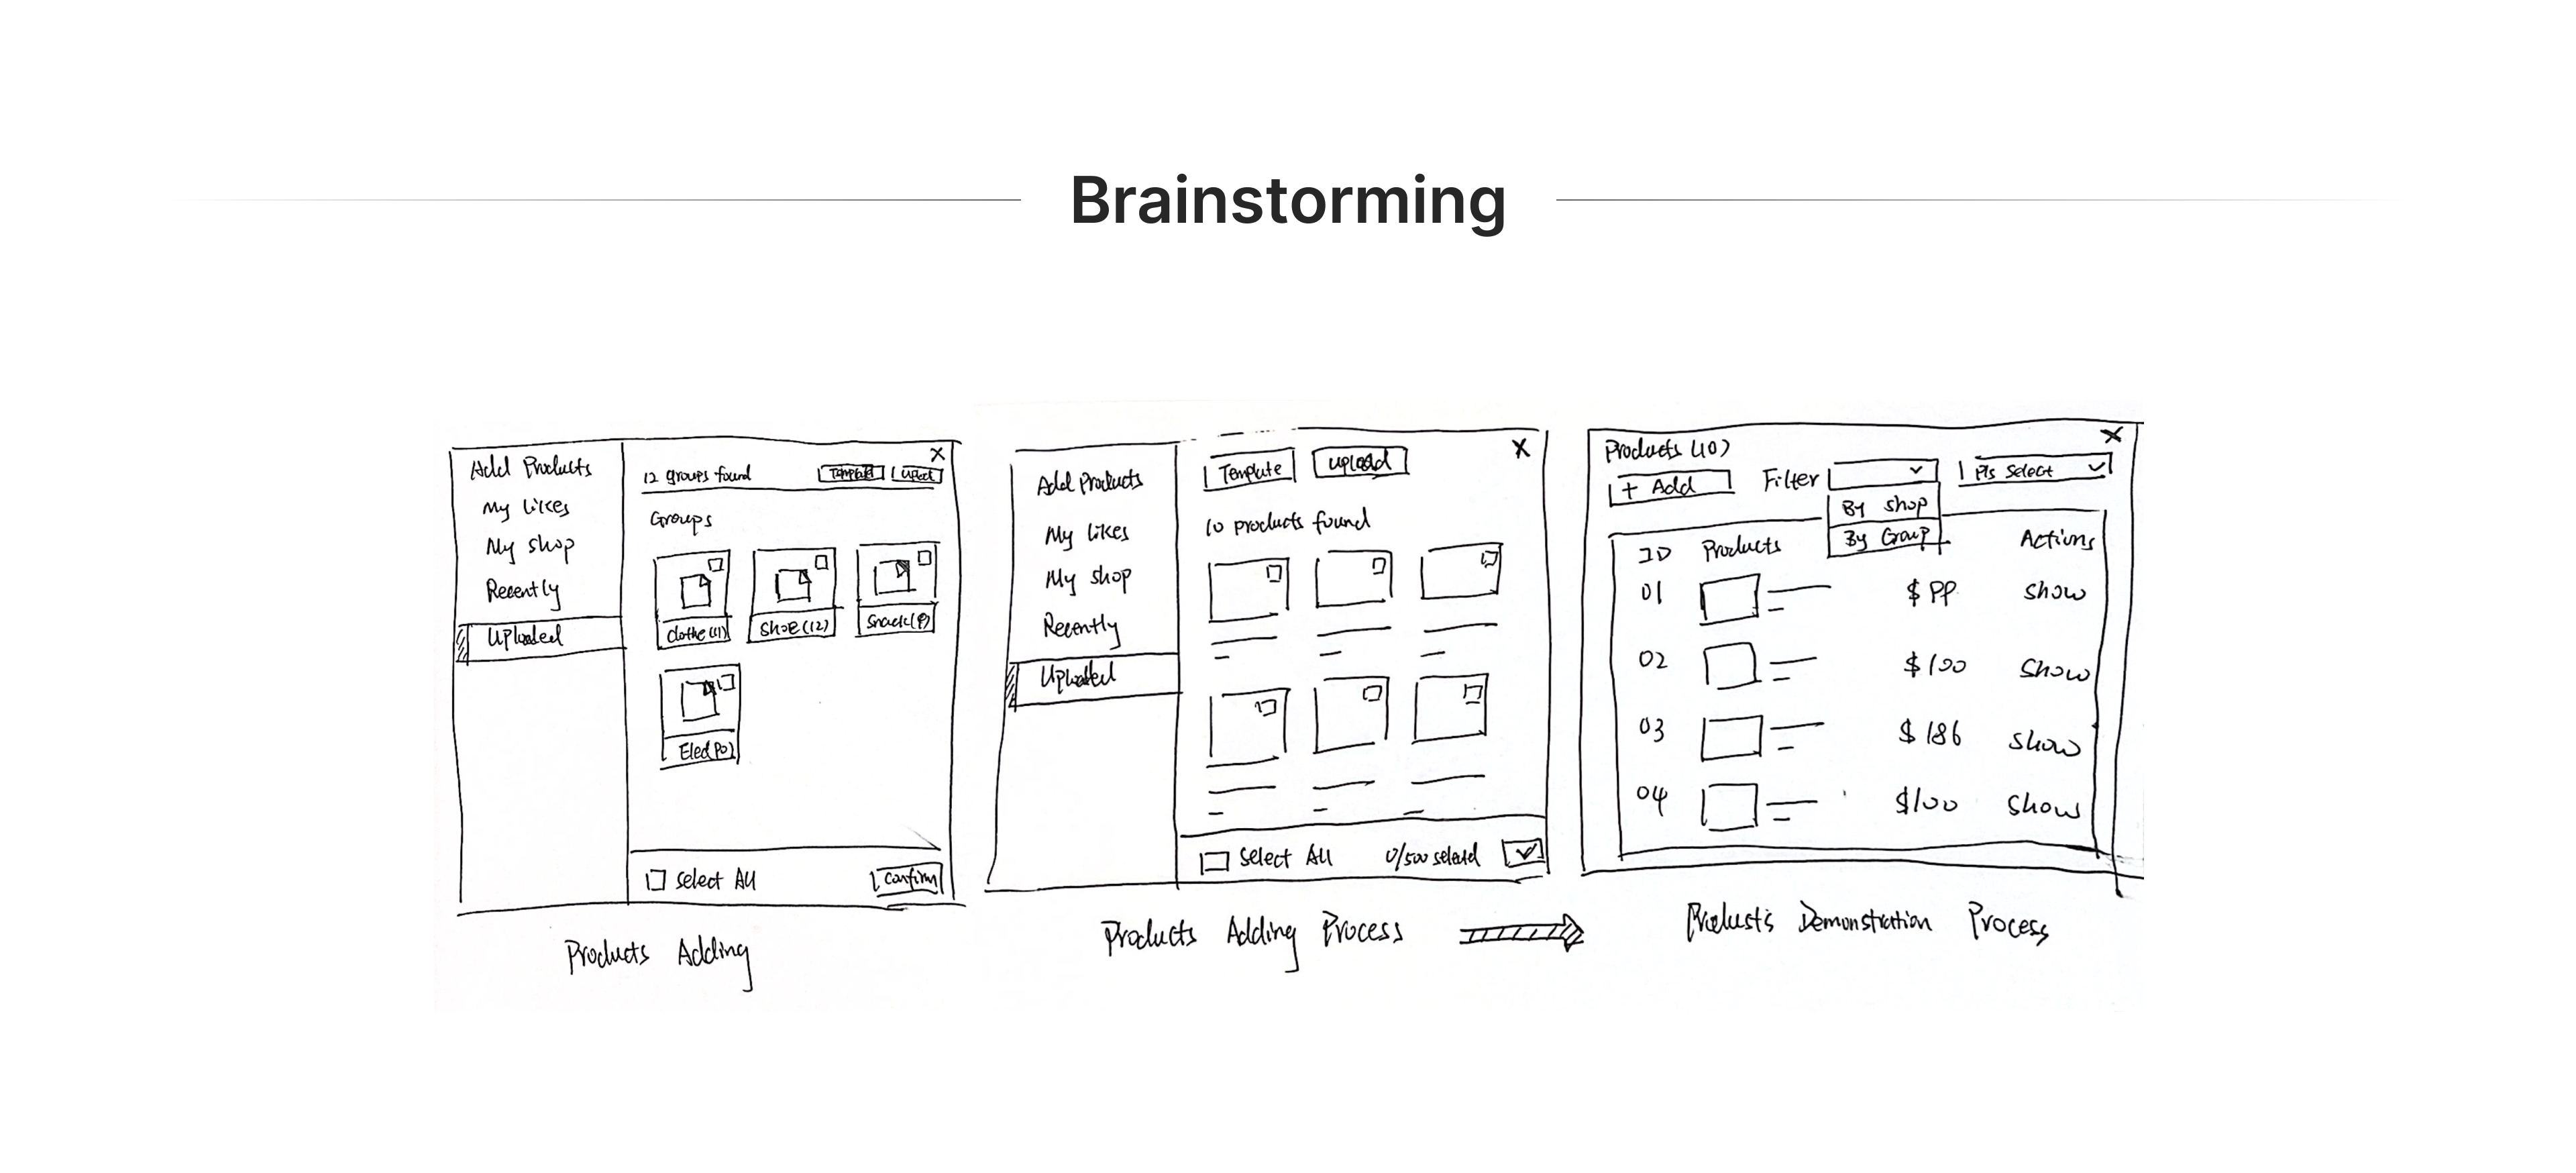 Brainstorming
Add Products
My likes
My shop
Recently
Uploaded
12 groups found
Template
Upload
X
Groups
clothe(11)
Shoe(12)
Snack(9)
Select All
Confirm
Products Adding
Add Products
My likes
My shop
Recently
Uploaded
Template
upload
X
10 products found
Select All
0/500 selectd
Products Adding Process
Products (10)
X
+ Add
Filter
Pls Select
By shop
By Group
ID
Products
Actions
01
$ 99
show
02
$ 100
show
03
$ 186
show
04
$100
show
Products Demonstration Process